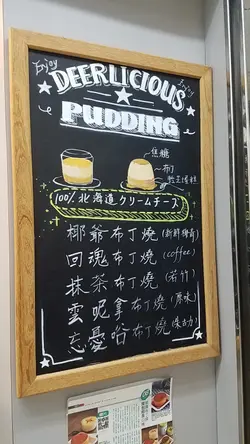 Enjoy
Enjoy
DEERLICIOUS
PUDDING
焦糖
布丁
100% 北海道クリームチーズ
椰爺布丁燒(新鮮椰香)
回魂布丁燒(coffee)
抹茶布丁燒(若竹)
雲呢拿布丁燒(原味)
忘憂咕布丁燒(朱古力)